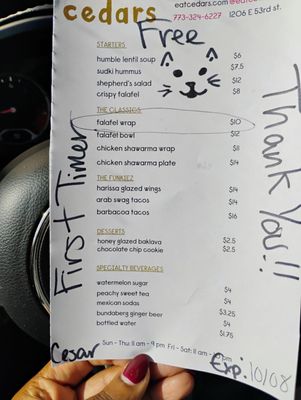 cedars
eatcedars.com
773-324-6227 1206 E 53rd st.
Free
STARTERS
humble lentil soup $6
sudki hummus $7.5
shepherd's salad $12
crispy falafel $8
THE CLASSICS
falafel wrap $10
falafel bowl $12
chicken shawarma wrap $11
chicken shawarma plate $14
THE FUNKIEZ
harissa glazed wings $14
arab swag tacos $14
barbacoa tacos $16
DESSERTS
honey glazed baklava $2.5
chocolate chip cookie $2.5
SPECIALTY BEVERAGES
watermelon sugar $4
peachy sweet tea $4
mexican sodas $3.25
bundaberg ginger beer $4
bottled water $1.75
Sun - Thu: 11 am - 9 pm Fri - Sat: 11 am - pm
First Timer
Thank You!!
Cesar
Exp. 10/08